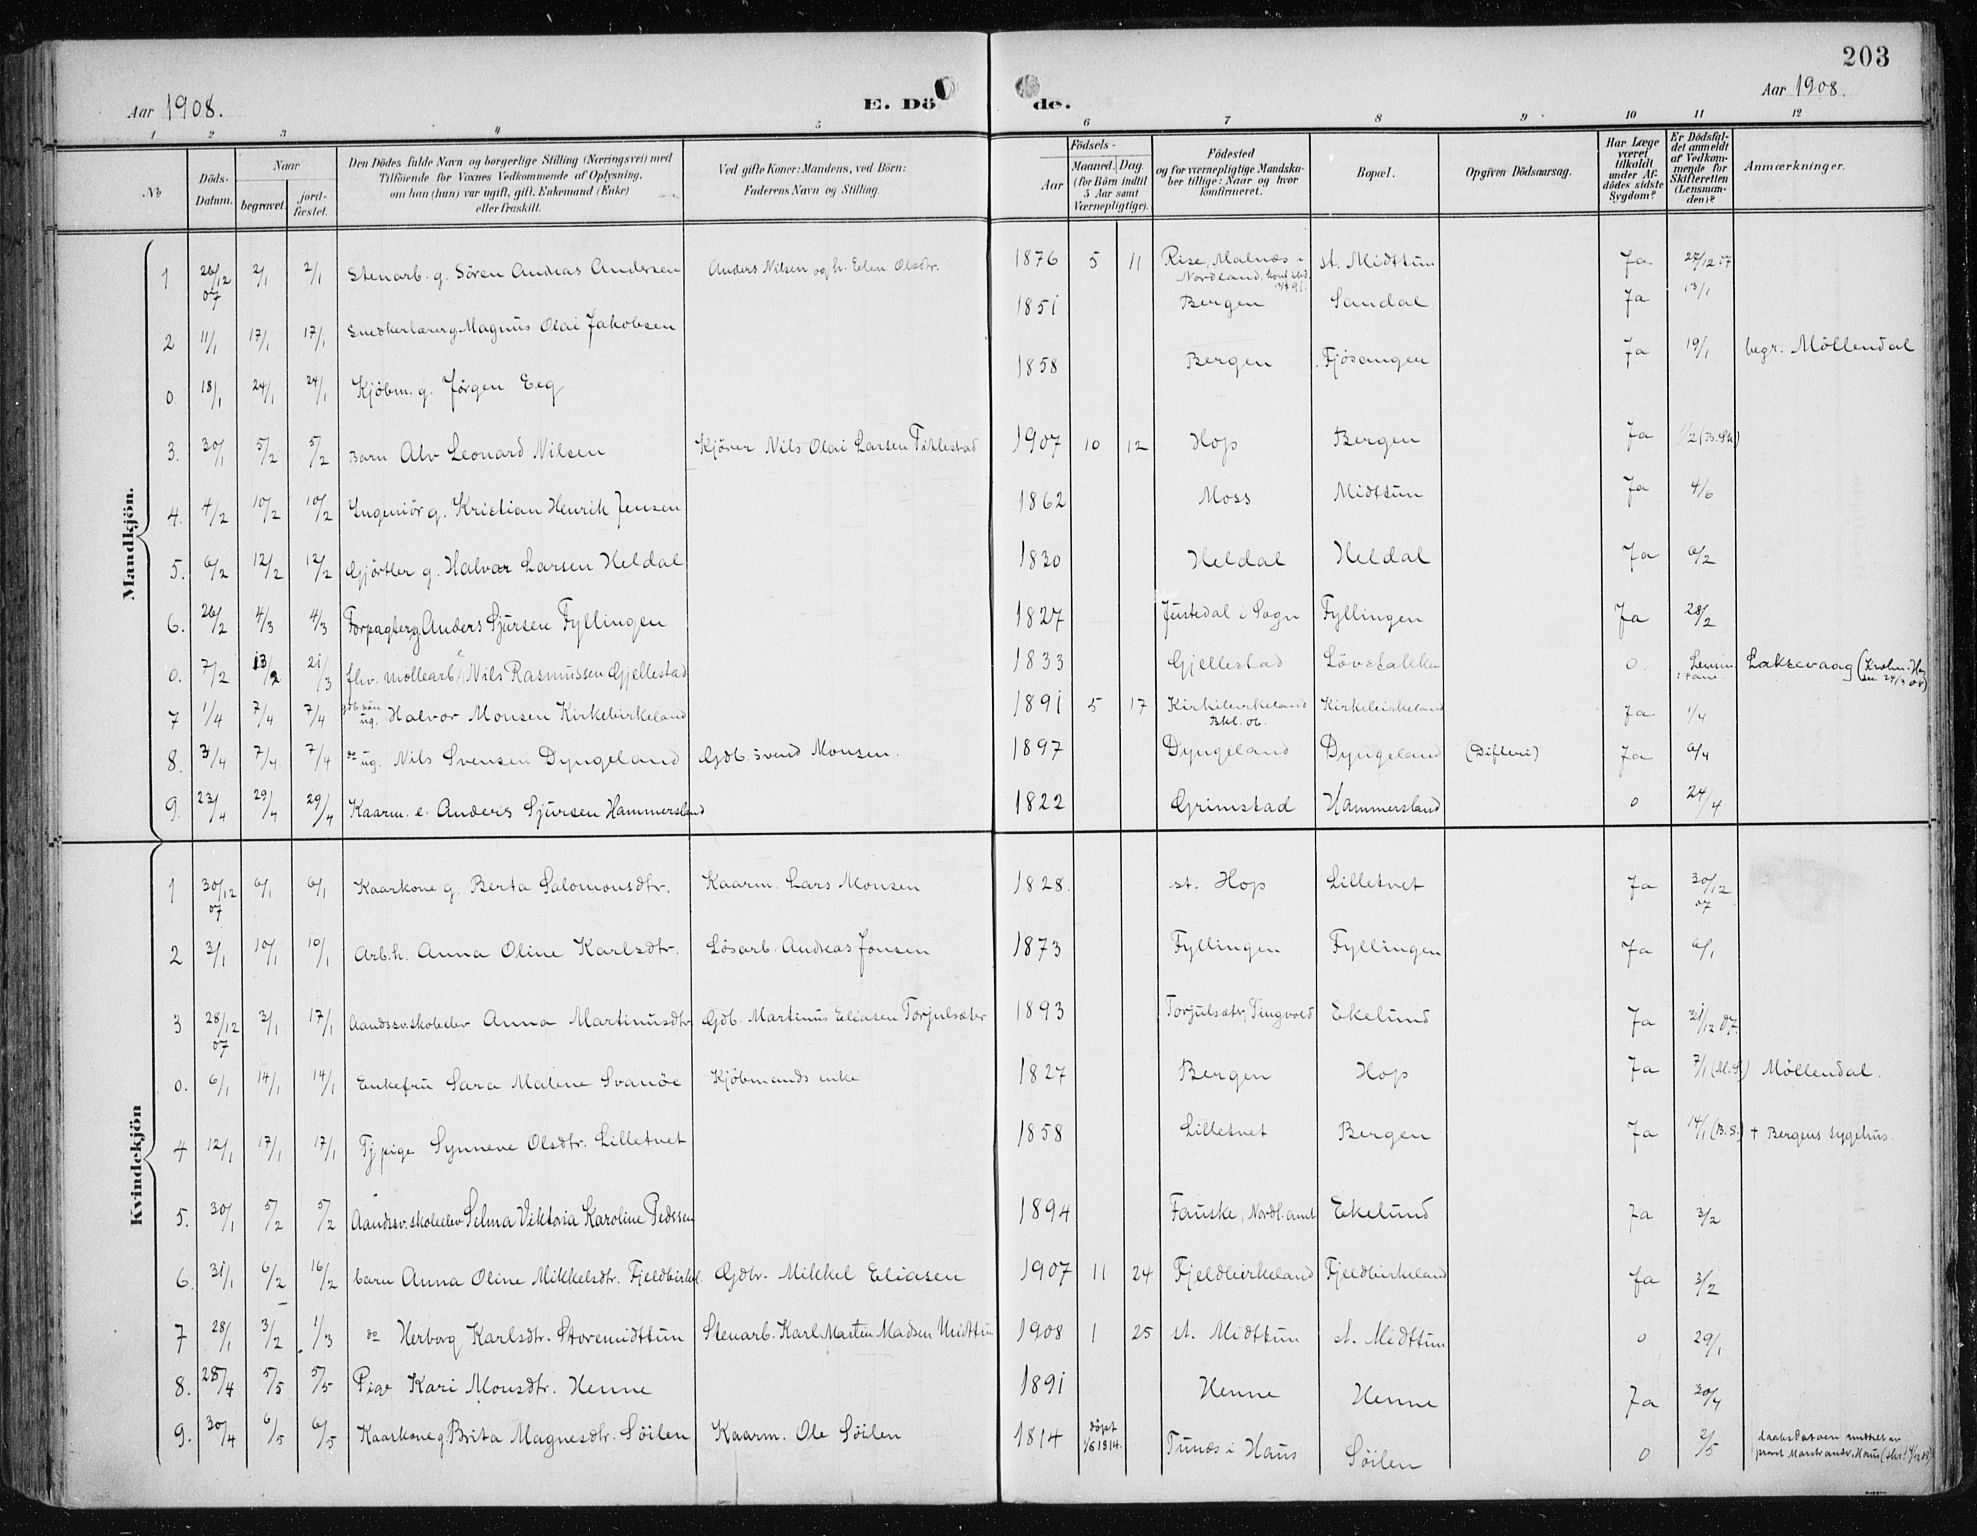 203
Aar 1908.
E. Dö de.
Aar 1908.
1 2 3 4 5 6 7 8 9 10 11 12
No.
Döds-Datum.
Naar
begravet.
jordfæstet.
Den Dödes fulde Navn og borgerlige Stilling (Næringsvei) med
Tilföiende for Voxnes Vedkommende af Oplysning,
om han (hun) var ugift, gift, Enkemand (Enke)
eller fraskilt.
Ved gifte Koner: Mandens, ved Börn:
Faderens Navn og Stilling.
Födsels-
Aar
Maaned. Dag
(for Börn indtil
5 Aar samt
Værnepligtige).
Födested
og for værnepligtige Mandska-
ber tillige: Naar og hvor
konfirmeret.
Bopæl.
Opgiven Dödsaarsag.
Har Læge
været
tilkaldt
under Af-
dödes sidste
Sygdom?
Er Dödsfal-
det anmeldt
af Vedkom-
mende for
Skifteretten
(Lensman-
den)?
Anmærkninger.
Mandkjön.
1 26/12 07 2/1 2/1 Stenarb. g. Sören Andreas Andersen Anders Nilsen og h. Elen Olsdtr. 1876 5 11 Rise, Malnæs i Nordland, st. Midttun Ja 27/12 07
2 11/1 17/1 17/1 Snedkerlærer g. Magnus Olai Jakobsen 1851 Bergen Sandal Ja 13/1
0 18/1 24/1 24/1 Kjöbm. g. Jörgen Eeg 1858 Bergen Fjösangen Ja 19/1 begr. Möllendal
3. 30/1 5/2 5/2 Barn Alv Leonard Nilsen Kjörer Nils Olai Larsen Titlestad 1907 10 12 Hop Bergen Ja 1/2 (B. Sk)
4. 4/2 10/2 10/2 Ingeniör g. Kristian Henrik Jensen 1862 Moss Midttun Ja 4/6
5. 6/2 12/2 12/2 Gjörtler g. Halvar Larsen Heldal 1830 Heldal Heldal Ja 6/2
6. 26/2 4/3 4/3 Forpagter g. Anders Sjursen Fyllingen 1827 Justedal i Sogn Fyllingen Ja 28/2
0. 7/2 13/2 21/3 fhv. möllearb. Nils Rasmussen Gjellestad 1833 Gjellestad Lövstakken 0. Lensm. i Fane. Laksevaag
7 1/4 7/4 7/4 gdb. sön ug. Halvor Monsen Kirkebirkeland 1891 5 17 Kirkebirkeland Kirkebirkeland Ja 1/4
8. 3/4 7/4 7/4 do ug. Nils Svensen Dyngeland Gdb. Svend Monsen. 1897 Dyngeland Dyngeland (Difteri) Ja 6/4
9. 23/4 29/4 29/4 Kaarm. e. Anders Sjursen Hammersland 1822 Grimstad Hammersland 0 24/4
Kvindekjön
1 30/12 07 6/1 6/1 Kaarkone g. Berta Salomonsdtr. Kaarm. Lars Monsen 1828. st. Hop Lilletvet Ja 30/12 07
2 3/1 10/1 10/1 Arb.h. Anna Oline Karlsdtr. Lösarb. Andreas Jonsen 1873 Fyllingen Fyllingen Ja 6/1
3 28/12 07 3/1 17/1 Aandssv. skoleelev Anna Martinusdtr Gdb. Martinus Eliasen Torjulsæter 1893 Torjulsætr, Tingvold Ekelund Ja 31/12 07.
0. 6/1 14/1 14/1 Enkefru Sara Malene Svanöe Kjöbmands enke 1827 Bergen Hop Ja 7/1 Möllendal.
4 12/1 17/1 17/1 Tj.pige Synneve Olsdtr. Lilletvet 1858 Lilletvet Bergen Ja 14/1 (B.S.) + Bergens sygehus.
5. 30/1 5/2 5/2 Aandssv. skoleelev Selma Viktoria Karoline Pedssen 1894 Fauske, Nordl. amt Ekelund Ja 3/2
6. 31/1 6/2 16/2 barn Anna Oline Mikkelsdtr. Fjeldbirkel. Gdbr. Mikkel Eliasen 1907 11 24 Fjeldbirkeland Fjeldbirkeland Ja 3/2
7 28/1 3/2 1/3 do Herborg Karlsdtr. Storemidttun Stenarb. Karl Martin Madsen Midttun 1908 1 25 st. Midttun st. Midttun 0 29/1
8. 28/4 5/5 5/5 Pige Kari Monsdtr. Henne 1891 Henne Henne Ja 30/4
9. 30/4 6/5 6/5 Kaarkone g. Brita Magnesdtr. Söilen Kaarm. Ole Söilen 1814 döpt 1/6 1814. Tunæs i Haus Söilen 0 2/5